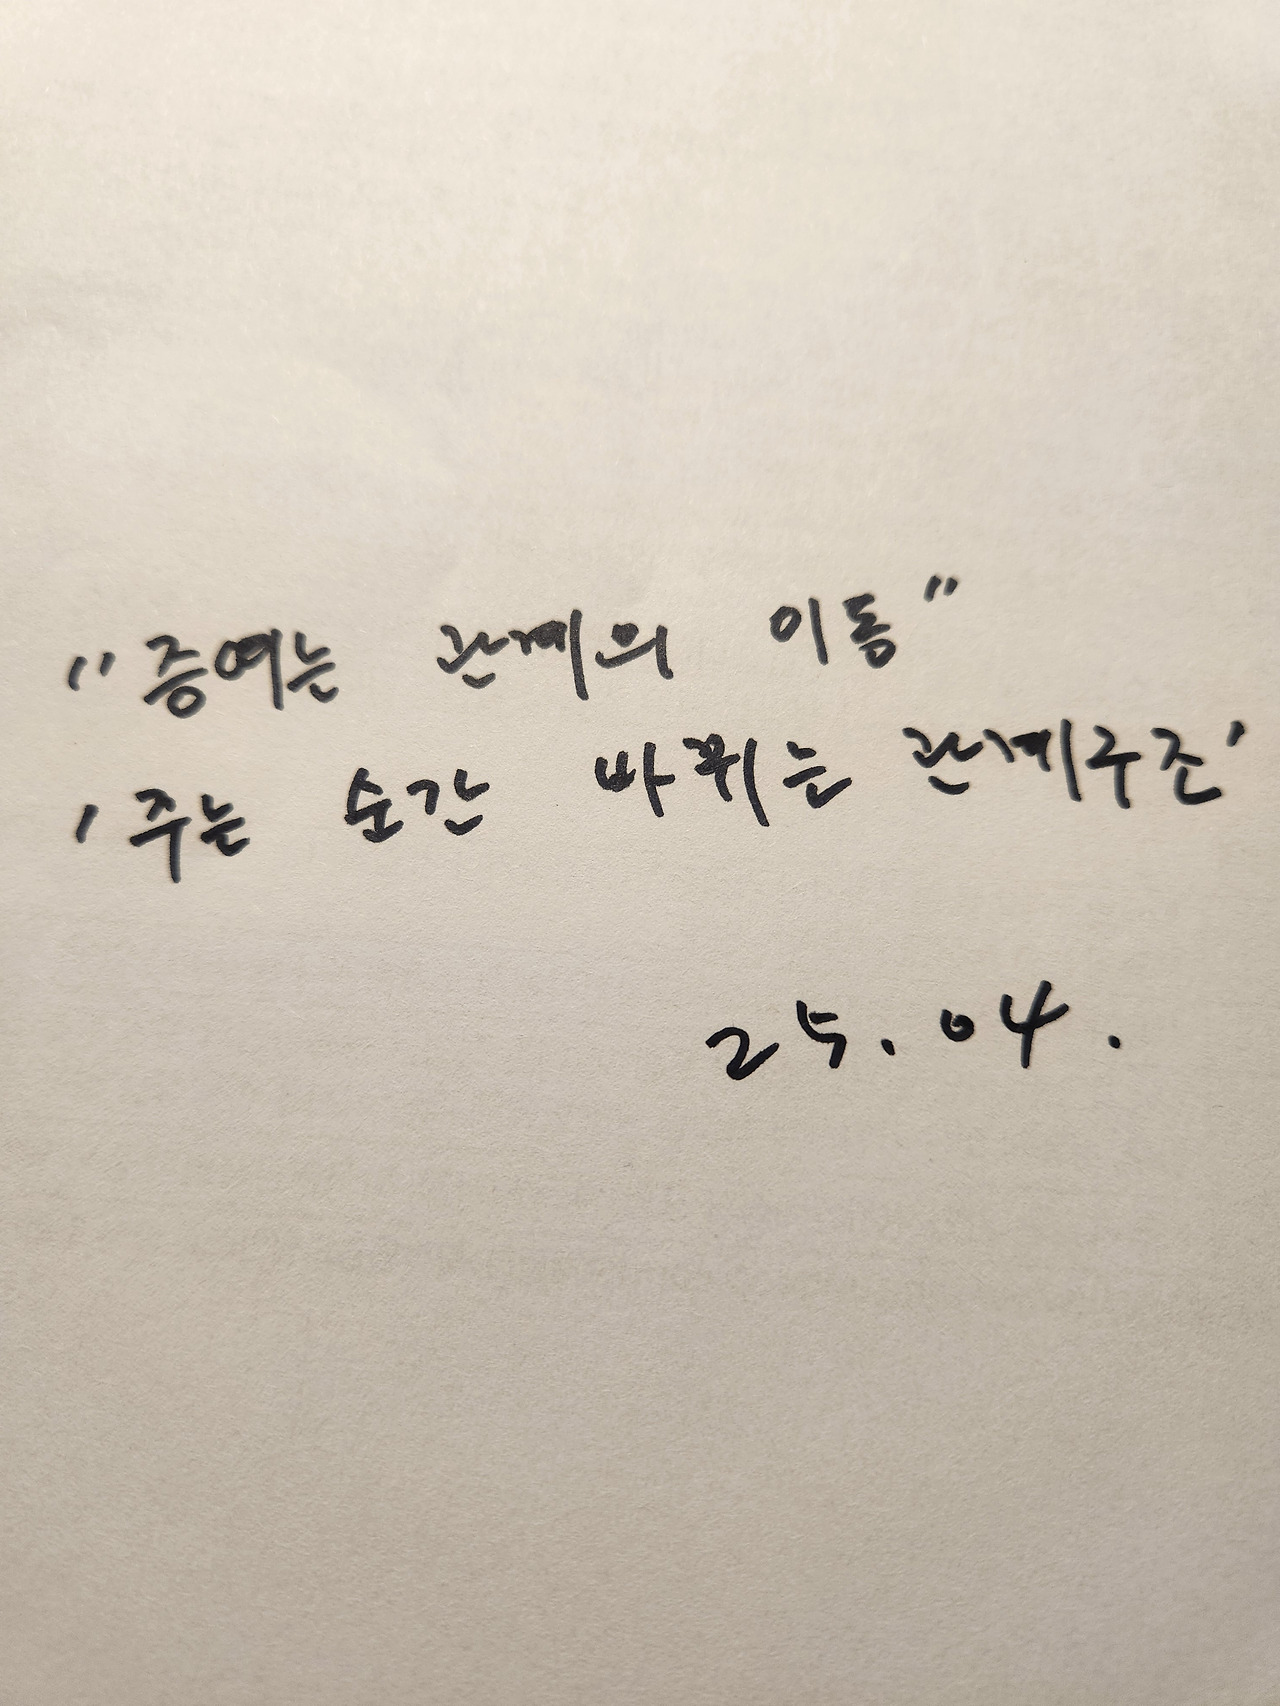 "증여는 관계의 이동"
'주는 순간 바뀌는 관계구조'
25.04.